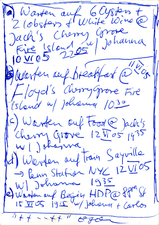 a) Warten auf 6 Oysters +
2 lobsters + White Wine @
Jack's Cherry Grove
Fire Island w/ Johanna
10 VI 05 2205
b) Warten auf Breakfast @
Floyd's Cherry Grove Fire
Island w/ Johanna 1030
c) Warten auf Food @ Jack's
Cherry Grove 12 VI 05 1435
w/ Johanna
d) Warten auf Train Sayville
→ Penn Station NYC 12 VI 05
w/ Johanna 1935
e) Warten auf Beginn HDP@
15 VI 05 w/ Johanna + Carlos